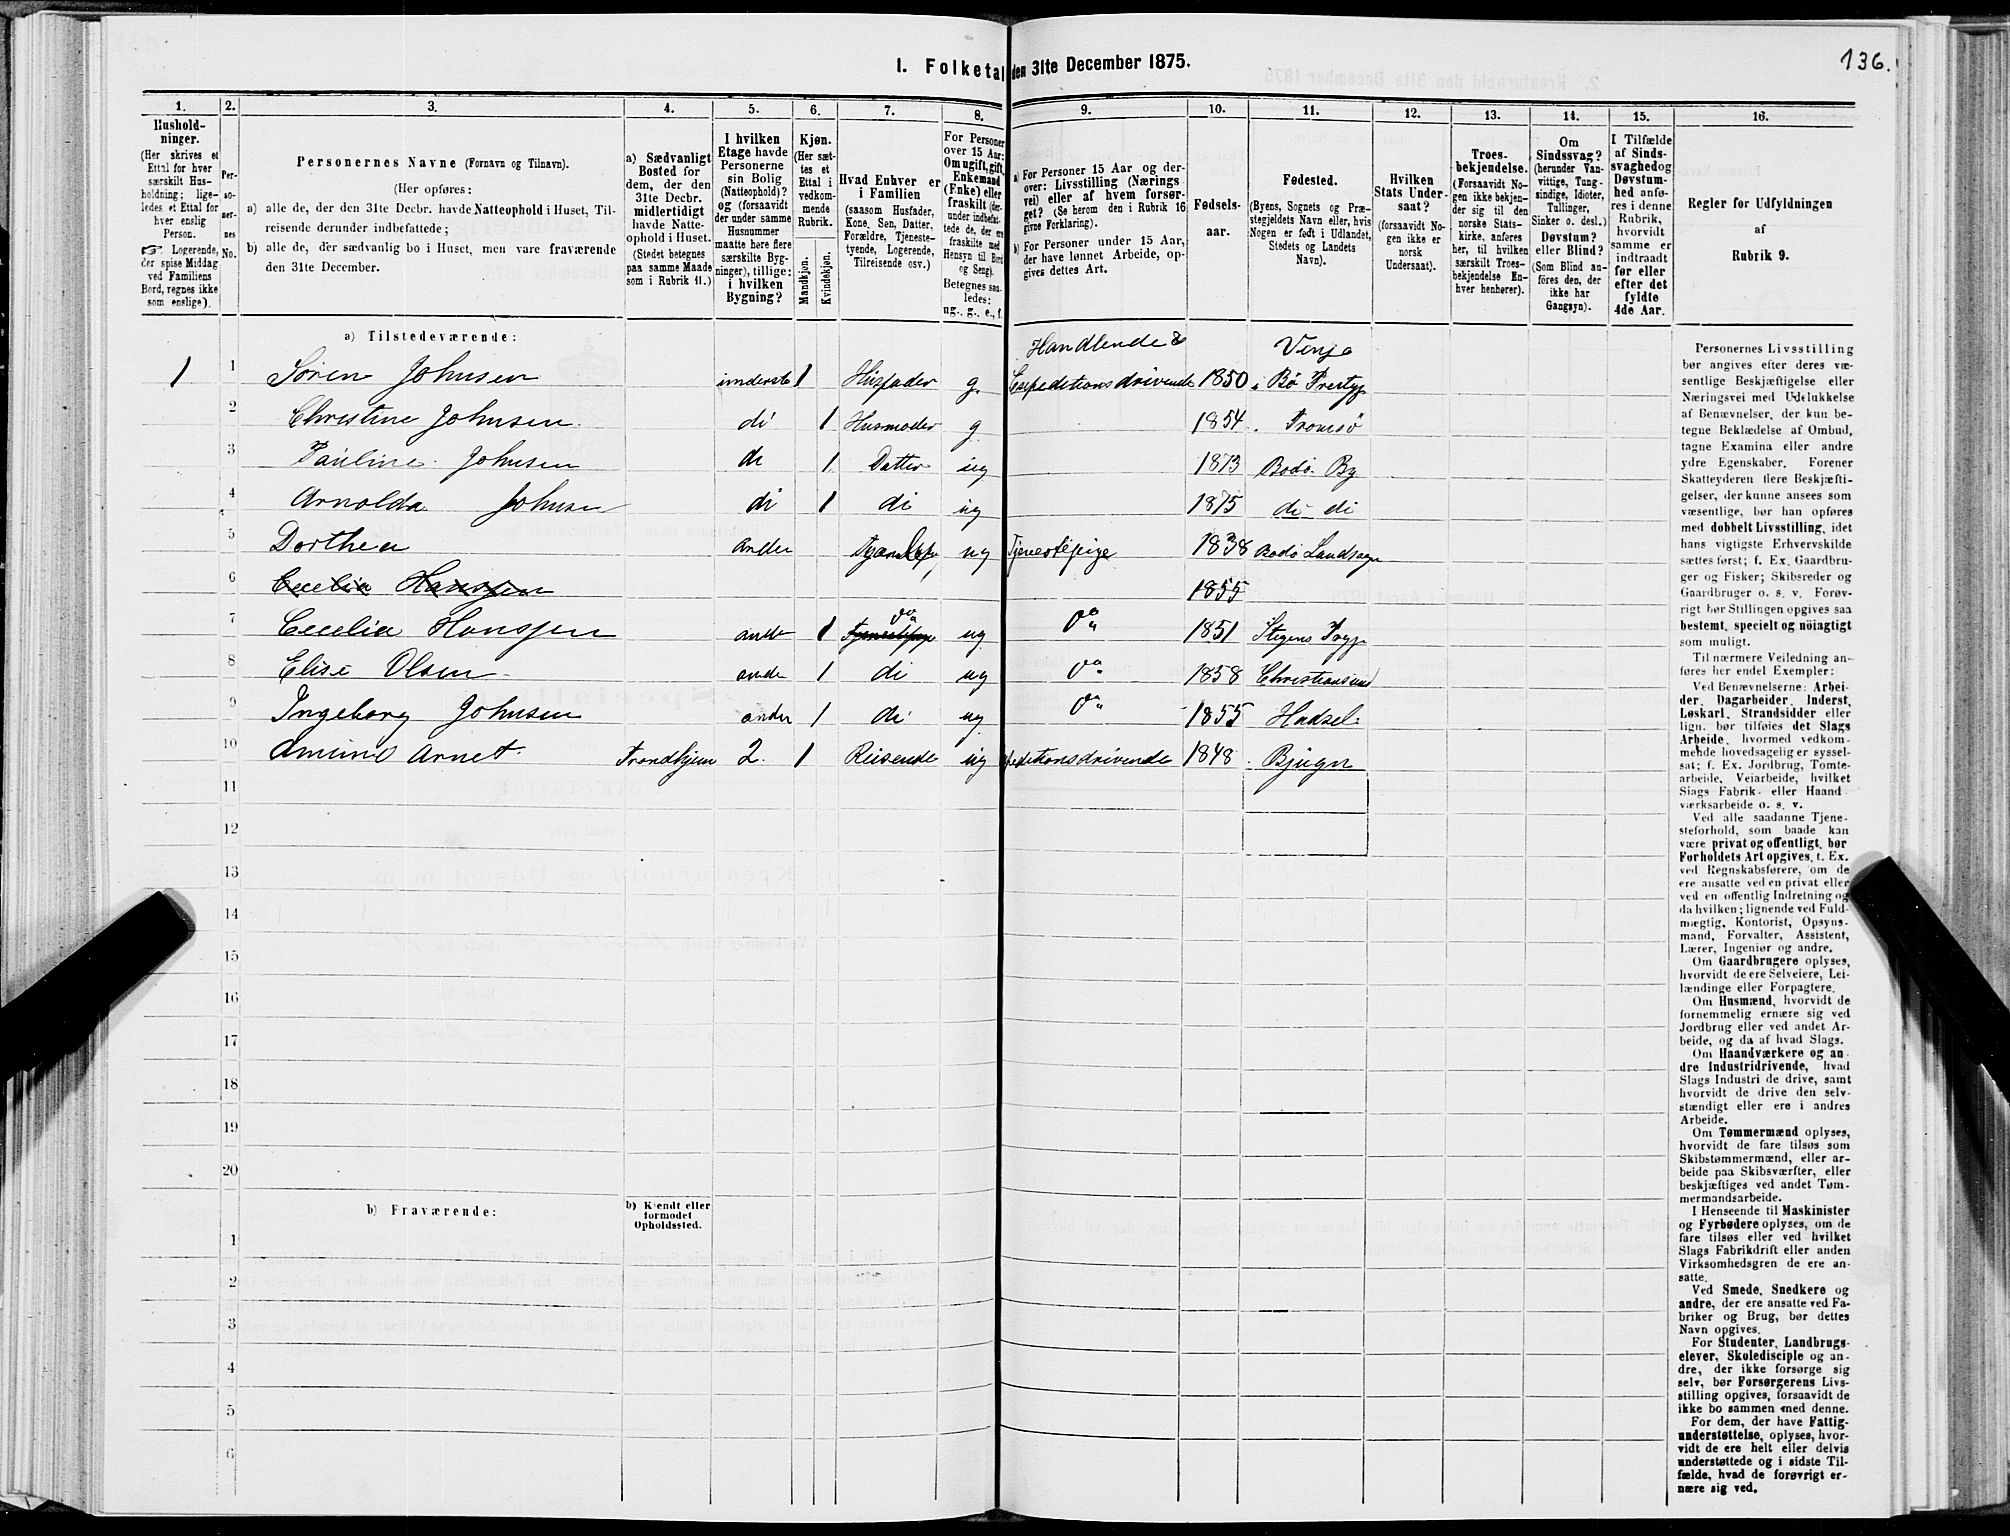 136.
I. Folketal den 31te December 1875.
1. 2. 3. 4. 5. 6. 7. 8. 9. 10. 11. 12. 13. 14. 15. 16.
Hushold-
ninger.
(Her skrives et
Ettal for hver
særskilt Hus-
holdning; lige-
ledes et Ettal for
hver enslig
Person.
☞ Logerende,
der spise Middag
ved Familiens
Bord, regnes ikke
som enslige).
Per-
so-
ner-
nes
No.
Personernes Navne (Fornavn og Tilnavn).
(Her opføres:
a) alle de, der den 31te Decbr. havde Natteophold i Huset, Til-
reisende derunder indbefattede;
b) alle de, der sædvanlig bo i Huset, men vare fraværende
den 31te December.
a) Sædvanligt
Bosted for
dem, der den
31te Decbr.
midlertidigt
havde Natte-
ophold i Huset.
(Stedet betegnes
paa samme Maade
som i Rubrik 11.)
I hvilken
Etage havde
Personerne
sin Bolig
(Natteophold)?
og (forsaavidt
der under samme
Husnummer
maatte høre flere
særskilte Byg-
ninger), tillige:
i hvilken
Bygning?
Kjøn.
(Her sæt-
tes et
Ettal i
vedkom-
mende
Rubrik.
Mandkjøn.
Kvindekjøn.
Hvad Enhver er
i Familien
(saasom Husfader,
Kone, Sen, Datter,
Forældre, Tjeneste-
tyende, Logerende,
Tilreisende osv.)
For Personer
over 15 Aar:
Om ugift, gift,
Enkemand
(Enke) eller
fraskilt (der-
under indbefat-
tede de, der ere
fraskilte med
Hensyn til Bord
og Seng).
Betegnes saa-
ledes:
ug., g., e., f.
a) For Personer 15 Aar og der-
over: Livsstilling (Nærings
vei) eller af hvem forsør-
get? (Se herom den i Rubrik 16
givne Forklaring).
b) For Personer under 15 Aar,
der have lønnet Arbeide, op-
gives dettes Art.
Fødsels-
aar.
Fødested.
(Byens, Sognets og Præ-
stegjeldets Navn eller, hvis
Nogen er født i Udlandet,
Stedets og Landets
Navn).
Hvilken
Stats Under-
saat?
(forsaavidt No-
gen ikke er
norsk
Undersaat).
Troes-
bekjendelse.
(Forsaavidt No-
gen ikke bekjen-
der sig til den
norske Stats-
kirke, anføres
her, til hvilken
særskilt Troes-
bekjendelse En-
hver henhører).
Om
Sindssvag?
(herunder Van-
vittige, Tung-
sindige, Idioter,
Tullinger,
Sinker o. desl.)
Døvstum?
eller Blind?
(Som Blind an-
føres den, der
ikke har
Gangsyn).
I Tilfælde
af Sinds-
svaghed og
Døvstum-
hed anfø-
res i denne
Rubrik,
hvorvidt
samme er
indtraadt
før eller
efter det
fyldte
4de Aar.
Regler for Udfyldningen
af
Rubrik 9.
a) Tilstedeværende:
Handlende & Venjo
1 1 Søren Johnsen underste 1 Husfader g. Expeditionsdrivende 1850 i Bø Prestgj
2 Christine Johnsen di 1 Husmoder g 1854 Tromsø
3 Pauline Johnsen di 1 Datter ug 1873 Bodø By
4 Arnolda Johnsen di 1 di ug 1875 di di
5 Dorthea anden ug Tjenestepige 1838 Bodø Landsogn
6 Cecelia Hansen 1855
7 Cecelia Hanssen ande 1 Tjenestepige do ug do 1851 Stegens
8 Elise Olsen ande 1 di ug do 1858 Christiansund
9 Ingeborg Johnsen anden 1 di ug do 1855 Hadsel
10 Amund Arnet Trondhjem 2. 1 Reisende ug Expeditionsdrivende 1848 Bjugn
11
12
13
14
15
16
17
18
19
20
b) Fraværende:
b) Kjendt eller
formodet
Opholdssted.
1
2
3
4
5
6
Personernes Livsstilling
bør angives efter deres væ-
sentlige Beskjæftigelse eller
Næringsvei med Udelukkelse
af Benævnelser, der kun be-
tegne Beklædelse af Ombud,
tagne Examina eller andre
ydre Egenskaber. Forener
Skatteyderen flere Beskjæfti-
gelser, der kunne ansees som
væsentlige, bør han opføres
med dobbelt Livsstilling, idet
hans vigtigste Erhvervskilde
sættes først; f. Ex. Gaardbru-
ger og Fisker; Skibsreder og
Gaardbruger o. s. v. Forøv-
rigt bør Stillingen opgives saa
bestemt, specielt og nöiagtigt
som muligt.
Til nærmere Veiledning an-
føres her endel Exempler:
Ved Benævnelserne: Arbei-
der, Dagarbeider, Inderst,
Løskarl, Strandsidder eller
lign. bør tilføies det Slags
Arbeide, hvormed vedkom-
mende hovedsagelig er syssel-
sat; f. Ex. Jordbrug, Tomte-
arbeide, Veiarbeide, hvilket
Slags Fabrik- eller Haand-
værksarbeide o. s. v.
Ved alle saadanne Tjene-
steforhold, som baade kan
være privat og offentligt, bør
Forholdets Art opgives, t. Ex.
ved Regnskabsførere, om de
ere ansatte ved en privat eller
ved en offentlig Indretning og
da hvilken; lignende ved Fuld-
mægtig, Kontorist, Opsyns-
mand, Forvalter, Assistent,
Lærer, Ingeniør og andre.
Om Gaardbrugere oplyses,
hvorvidt de ere Selveiere, Lei-
lændinge eller Forpagtere.
Om Husmænd, hvorvidt de
fornemmelig ernære sig ved
Jordbrug eller ved andet Ar-
beide, og da af hvad Slags.
Om Haandværkere og an-
dre Industridrivende, hvad
Slags Industri de drive, samt
hvorvidt de drive den selv-
stændigt eller ere i andres
Arbeide.
Om Tømmermænd oplyses,
hvorvidt de fare tilsøs som
Skibstømmermænd, eller ar-
beide paa Skibsværfter, eller
beskjæftiges ved andet Tøm-
mermandsarbeide.
I Henseende til Maskinister
og Fyrbødere oplyses, om de
fare tilsøs eller ved hvilket
Slags Fabrikdrift eller anden
Virksomhedsgren de ere an-
satte.
Ved Smede, Snedkere og
andre, der ere ansatte ved Fa-
briker og Brug, bør dettes
Navn opgives.
For Studenter, Landbrugs-
elever, Skoledisciple og an-
dre, der ikke forsørge sig
selv, bør Forsørgerens Livs-
stilling opgives, forsaavidt de
ikke bo sammen med denne.
For dem, der have Fattig-
understøttelse, oplyses, hvor-
vidt de ere helt eller delvis
understøttede og i sidste Til-
fælde, hvad de forøvrigt er-
nære sig ved.